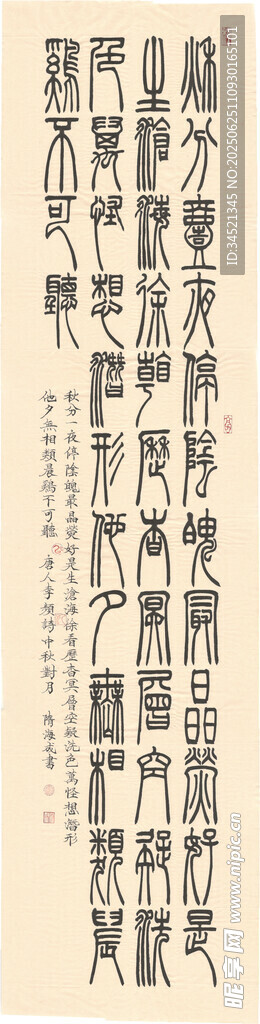 秋分壹夜停陰魄最晶熒好是
生滄海徐看歷杳冥層空疑洗
色萬怪想潛形他夕無相類晨
鷄不可聽
秋分一夜停陰魄最晶熒好是生滄海徐看歷杳冥層空疑洗色萬怪想潛形
他夕無相類晨鷄不可聽 唐人李頻詩中秋對月 隋海成書
ID:34521345 NO:20250625110930165101
昵享网 www.nipic.cn